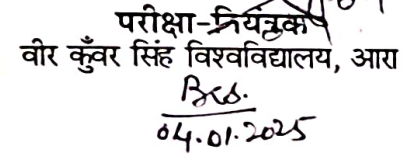 परीक्षा-नियंत्रक
वीर कुँवर सिंह विश्वविद्यालय, आरा
04.01.2025